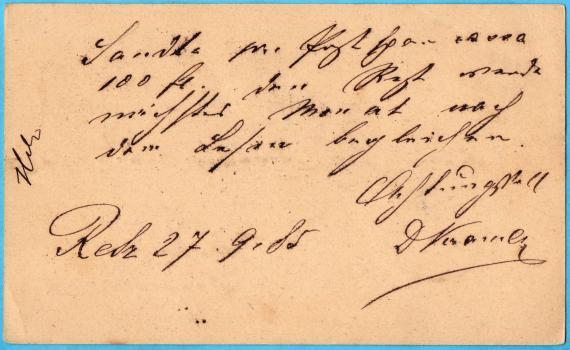 Sandte per Postspar
100 fl. den Rest werde
nächstes Monat nach
dem Lesen begleichen.
Achtungsvoll
Retz 27.9.85